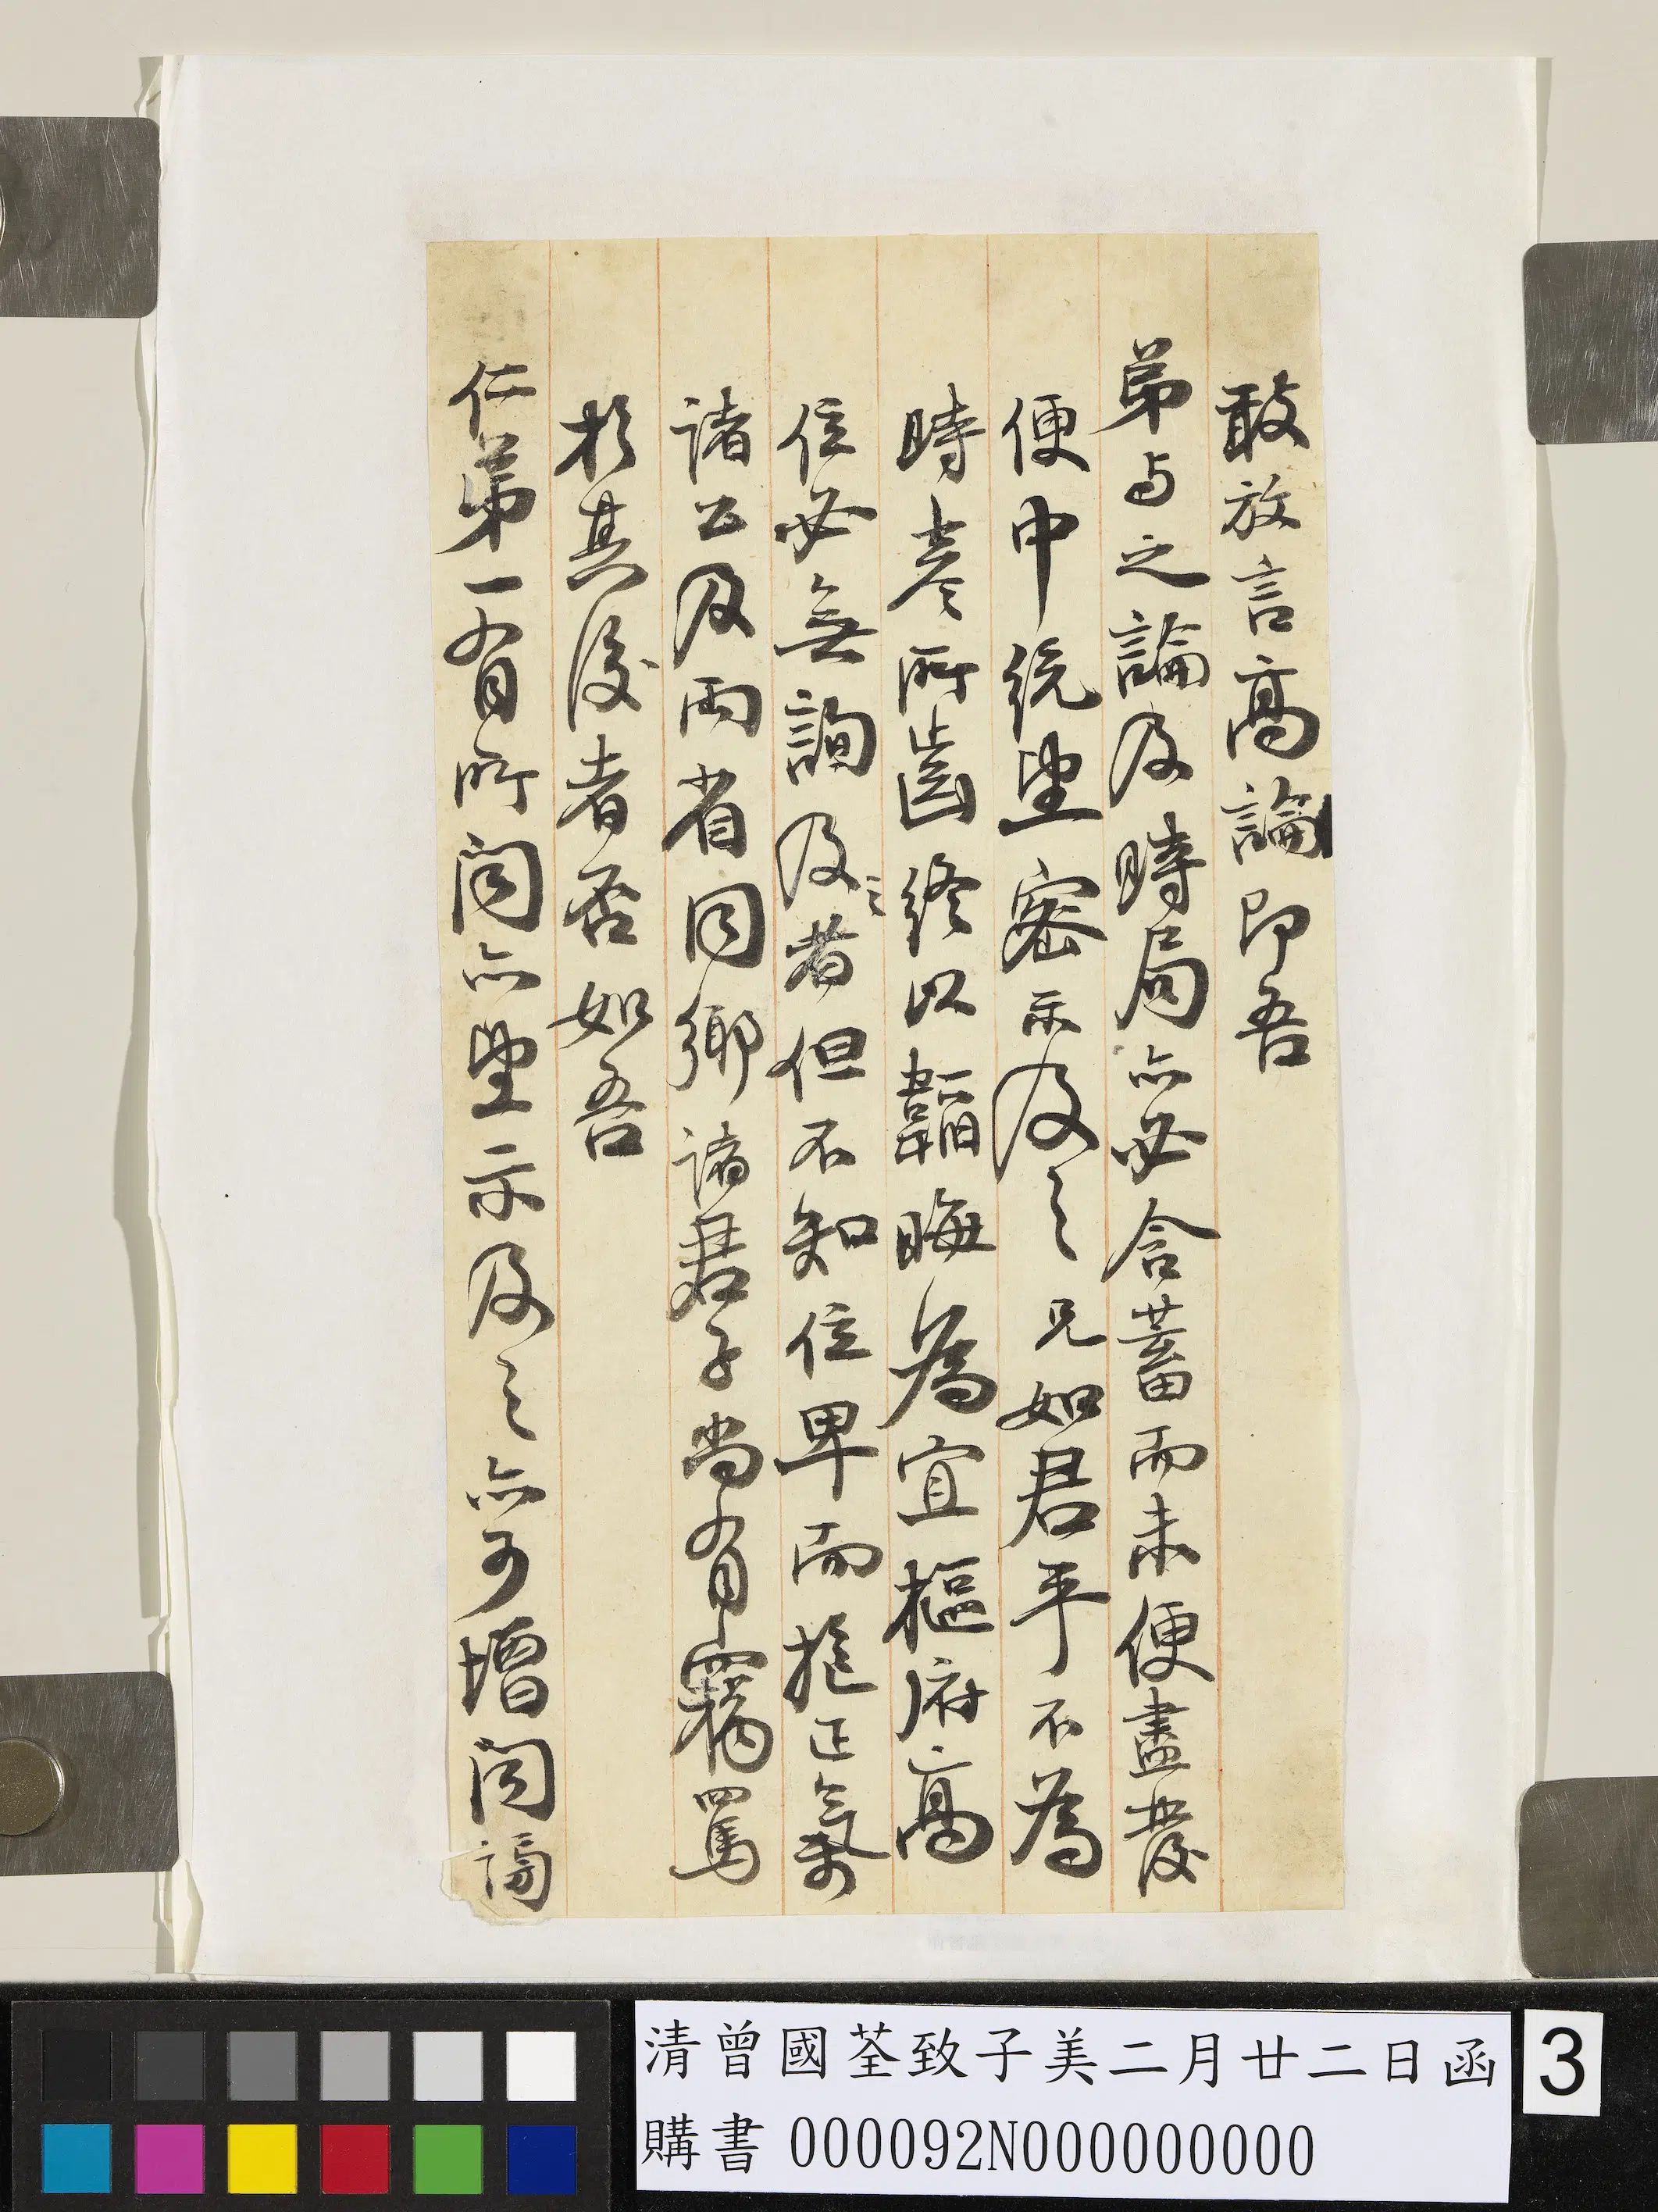 敢放言高論即吾
弟与之論及時局亦必含蓄而未便盡發
便中統望密示及之兄如君平不為
時彥所齒終以韜晦為宜樞府高
位必無詢及之者但不知位卑而抱正氣
諸公及兩省同鄉諸君子尚有竊罵
於其後者否如吾
仁弟一有所聞亦望示及之亦可增聞
清曾國荃致子美二月廿二日函
購書 000092N000000000
3